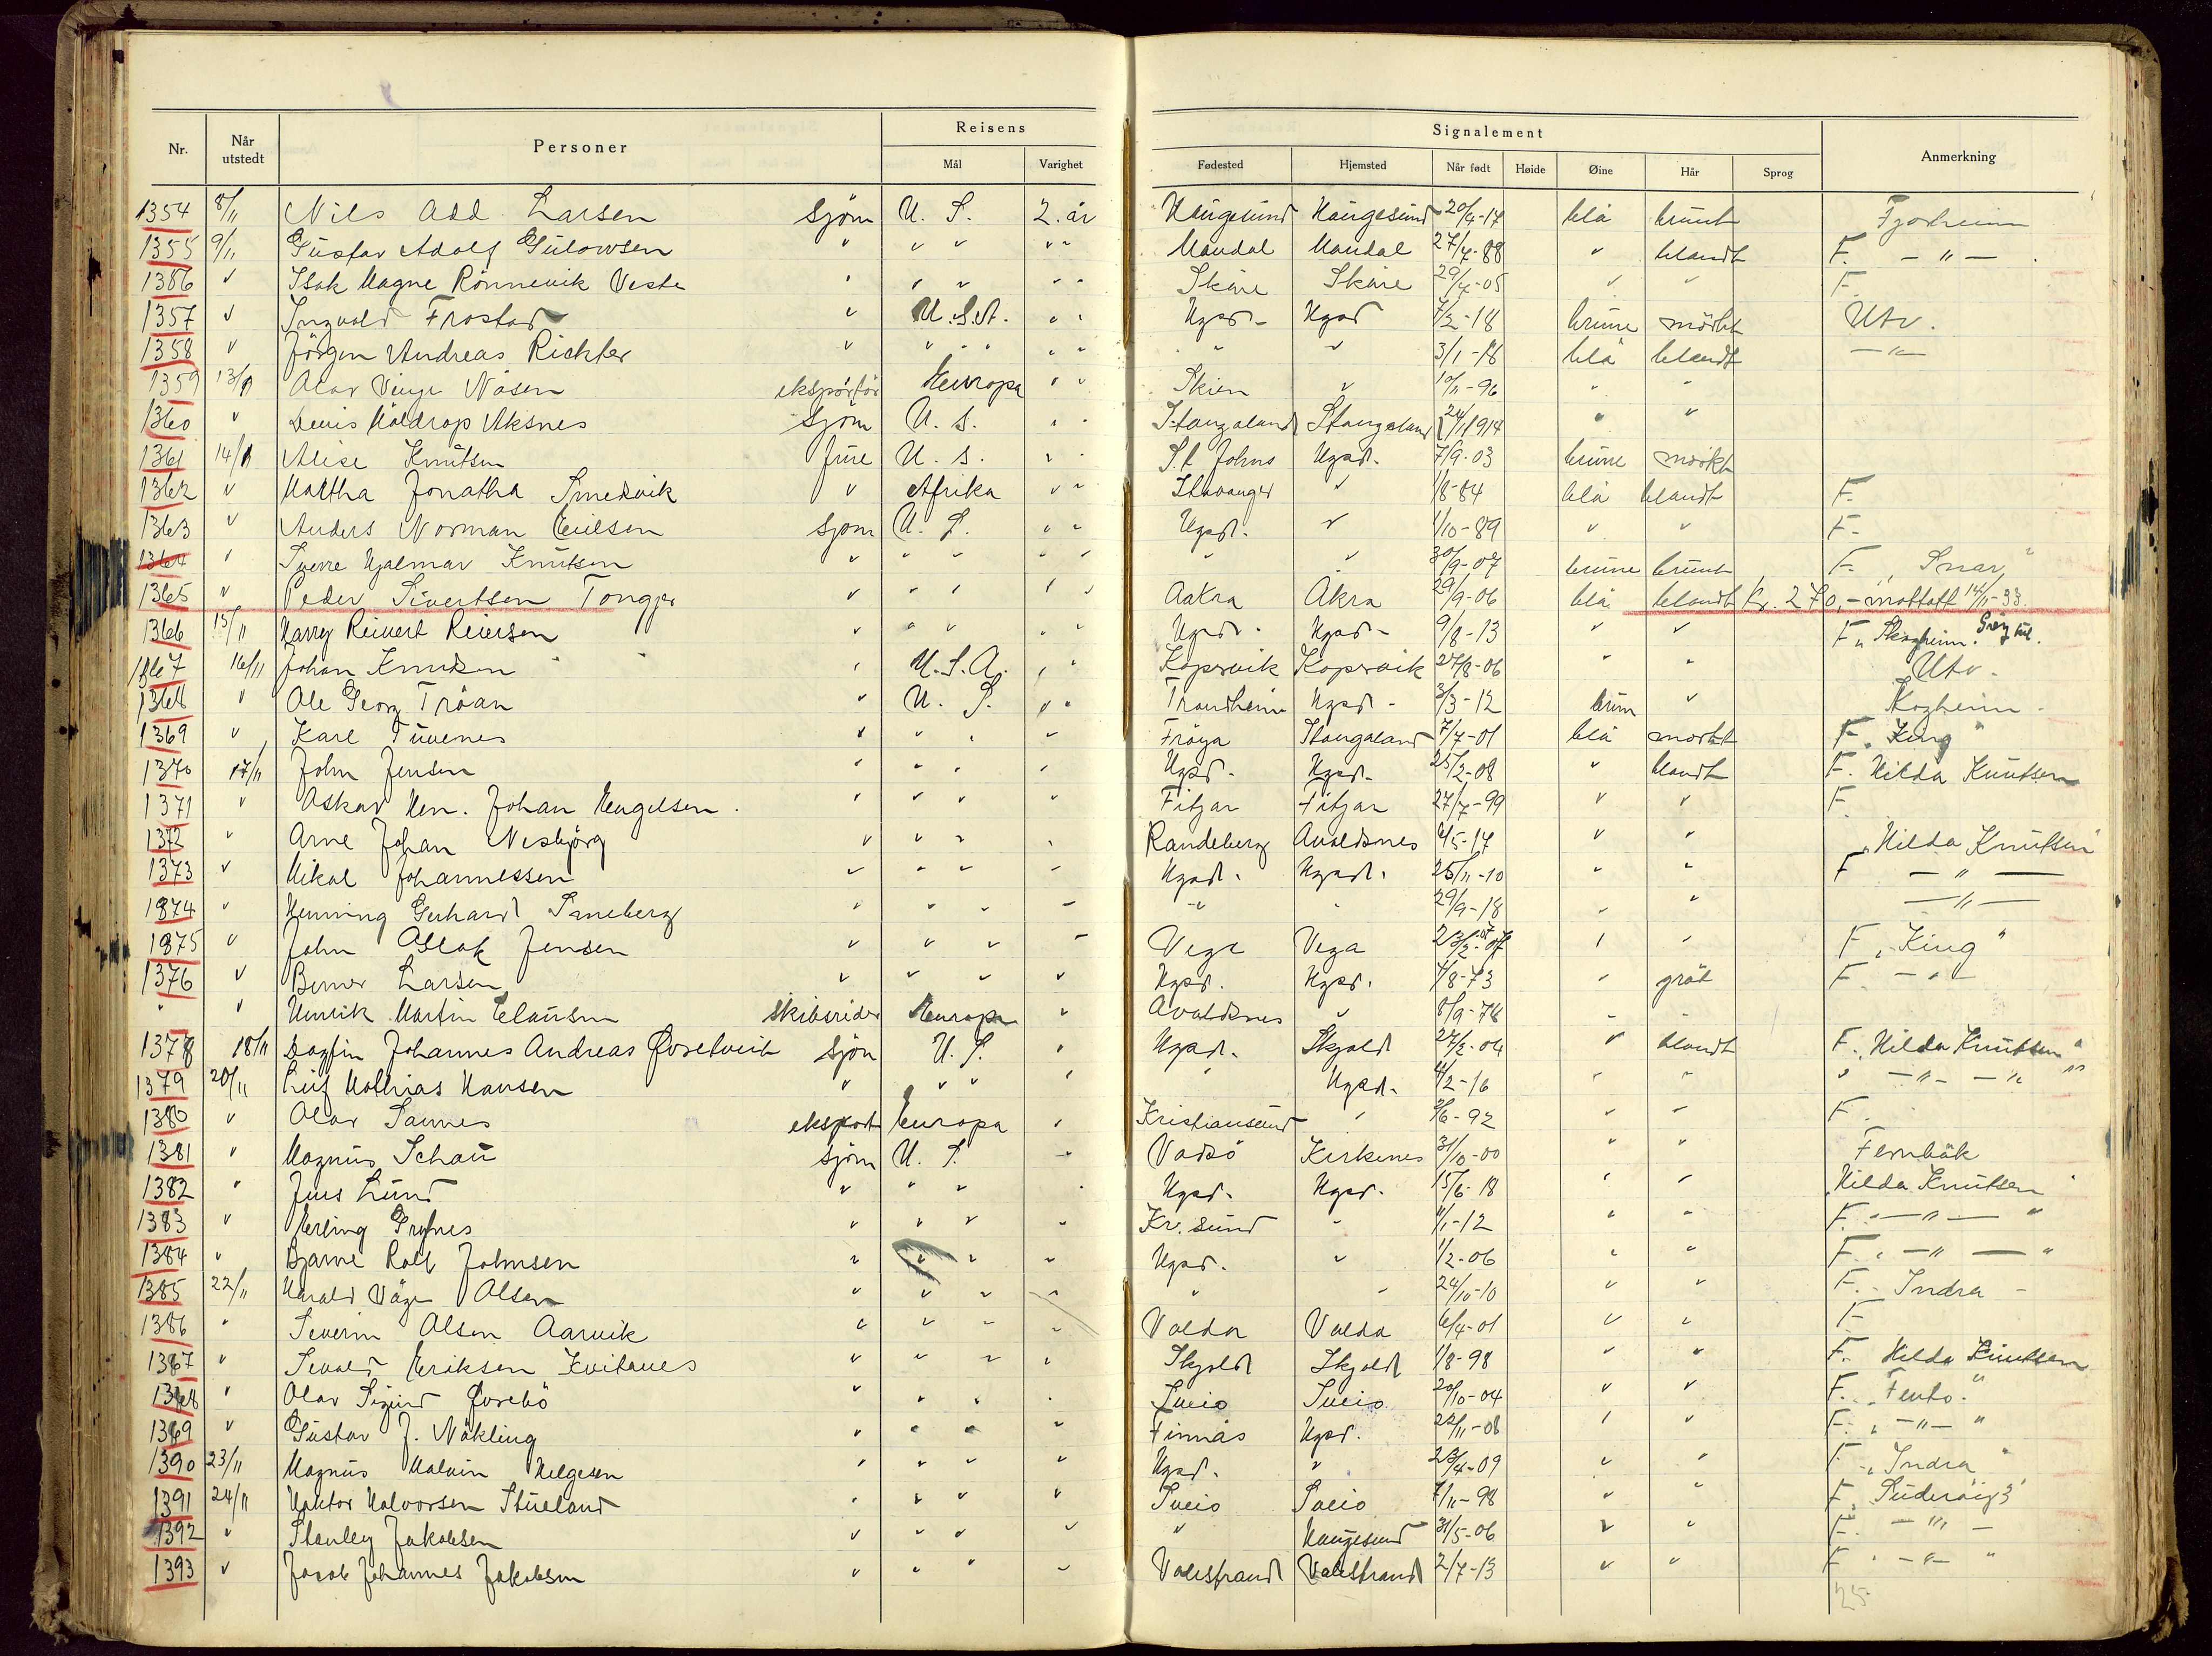 Nr. Når utstedt Personer Reisens Mål Varighet Signalement Fødested Hjemsted Når født Høide Øine Hår Sprog Anmerkning
1354 8/11 Nils Add. Larsen sjøm U. S. 2. år Haugesund Haugesund 20/4-17 blå brunt
1355 9/11 Gustav Adolf Gulowsen " " " " " Mandal Mandal 27/4-88 " blandt F. - " -
1356 " Isak Magne Rönnevik Veste " " " " " Skåre Skåre 29/4-05 " " F.
1357 " Ingvald Frostad " U.S.A. " " Hgsd. Hgsd 7/2-18 brune mörkt Utv.
1358 " Jörgen Andreas Richter " " " " " " " " 3/1-18 blå blandt - " -
1359 13/11 Olav Vinje Nåsen eksportør Europa " " Skien " 10/11-96 " "
1360 " Denis Valdrop Aksnes sjøm U. S. " " Stangaland Stangaland 24/1 1914 " "
1361 14/11 Alise Knutsen frue U. S. " " St Johns Hgsd. 7/9-03 brune mörkt
1362 " Martha Jonatha Smedvik " Afrika " " Stavanger " 1/8-84 blå blandt F.
1363 " Anders Norman Emilsen sjøm U. S. " " Hgsd. " 1/10-89 " " F.
1364 " Sverre Hjalmar Knutsen " " " " " " " 30/9-07 brune brunt F. "Snar"
1365 " Peder Sivertsen Tonger " " " " " Aakra Åkra 29/9-06 blå blandt Kr. 270,- mottatt 14/11-33
1366 15/11 Harry Reinert Reiersen " " " " " Hgsd. Hgsd. 9/8-13 " " F. "Skogheim".
1367 16/11 Johan Knudsen " U.S.A. " " Kopervik Kopervik 27/8-06 " " Utv.
1368 " Ole Georg Tröan " U. S. " " Trondheim Hgsd. 3/3-12 brun "
1369 " Karl Tuvenes " " " " Fröya Stangaland 7/7-01 blå mörkt F. "King"
1370 17/11 John Jensen " " " " Hgsd. Hgsd. 25/2-08 " blandt F. Hilda Knutsen
1371 " Oskar Hen. Johan Engelsen " " " " Fitjar Fitjar 27/7-99 " " F.
1372 " Arne Johan Nesbjörg " " " " Randeberg Avaldsnes 4/5-17 " " "Hilda Knutsen"
1373 " Mikal Johannessen " " " " Hgsd. Hgsd. 25/11-10 " " F - " -
1374 " Henning Gerhard Smeberg " " " " " " 29/9-18 " " - " -
1375 " John Aslak Jensen " " " " Vega Vega 23/2-07 " " F "King"
1376 " Berner Larsen " " " " Hgsd. Hgsd. 4/8-73 " gråt F. - " -
" " Henrik Martin Clausen skibsreder Europa " Avaldsnes " 8/9-78 " "
1378 18/11 Dagfin Johannes Andreas Øvretveit sjøm U. S. " Hgsd. Skjold 27/2-04 " blandt F. "Hilda Knutsen"
1379 20/11 Leif Mathias Hansen " " " " " Hgsd. 4/2-16 " " " - " - - " -
1380 " Olav Sannes eksport Europa " Kristiansund " 3/6-92 " " F.
1381 " Magnus Schau sjøm U. S. " Vadsö Kirkenes 31/10-00 " " Fernbäk
1382 " Jens Lund " " " " Hgsd. Hgsd. 15/6-18 " " "Hilda Knutsen"
1383 " Erling Grytnes " " " " Kr. sund " 4/1-12 " " F. " - " - "
1384 " Bjarne Rolf Johnsen " " " " Hgsd. " 1/2-06 " " F. " - " - "
1385 22/11 Harald Våge Olsen " " " " " " 24/10-10 " " F. - Indra -
1386 " Severin Olsen Aarvik " " " " Valda Valda 6/4-01 " " F
1387 " Sevald Eriksen Kvitanes " " " " Skjold Skjold 1/8-98 " " F. Hilda Knutsen
1388 " Olav Sigurd Øvrebö " " " " Sveio Sveio 20/10-04 " " F. "Tento."
1389 " Gustav J. Nökling " " " " Finnås Hgsd. 22/11-08 " " F. " - " - "
1390 23/11 Magnus Malvin Helgesen " " " " Hgsd. " 23/4-09 " " F. "Indra"
1391 24/11 Haktor Halvorsen Stueland " " " " Sveio Sveio 7/11-98 " " F. "Suderöig 3"
1392 " Stanley Jakobsen " " " " " Haugesund 31/5-06 " " F. - " -
1393 " Jacob Johannes Jakobsen " " " " Valestrand Valestrand 2/7-13 " " F " - " - "
25